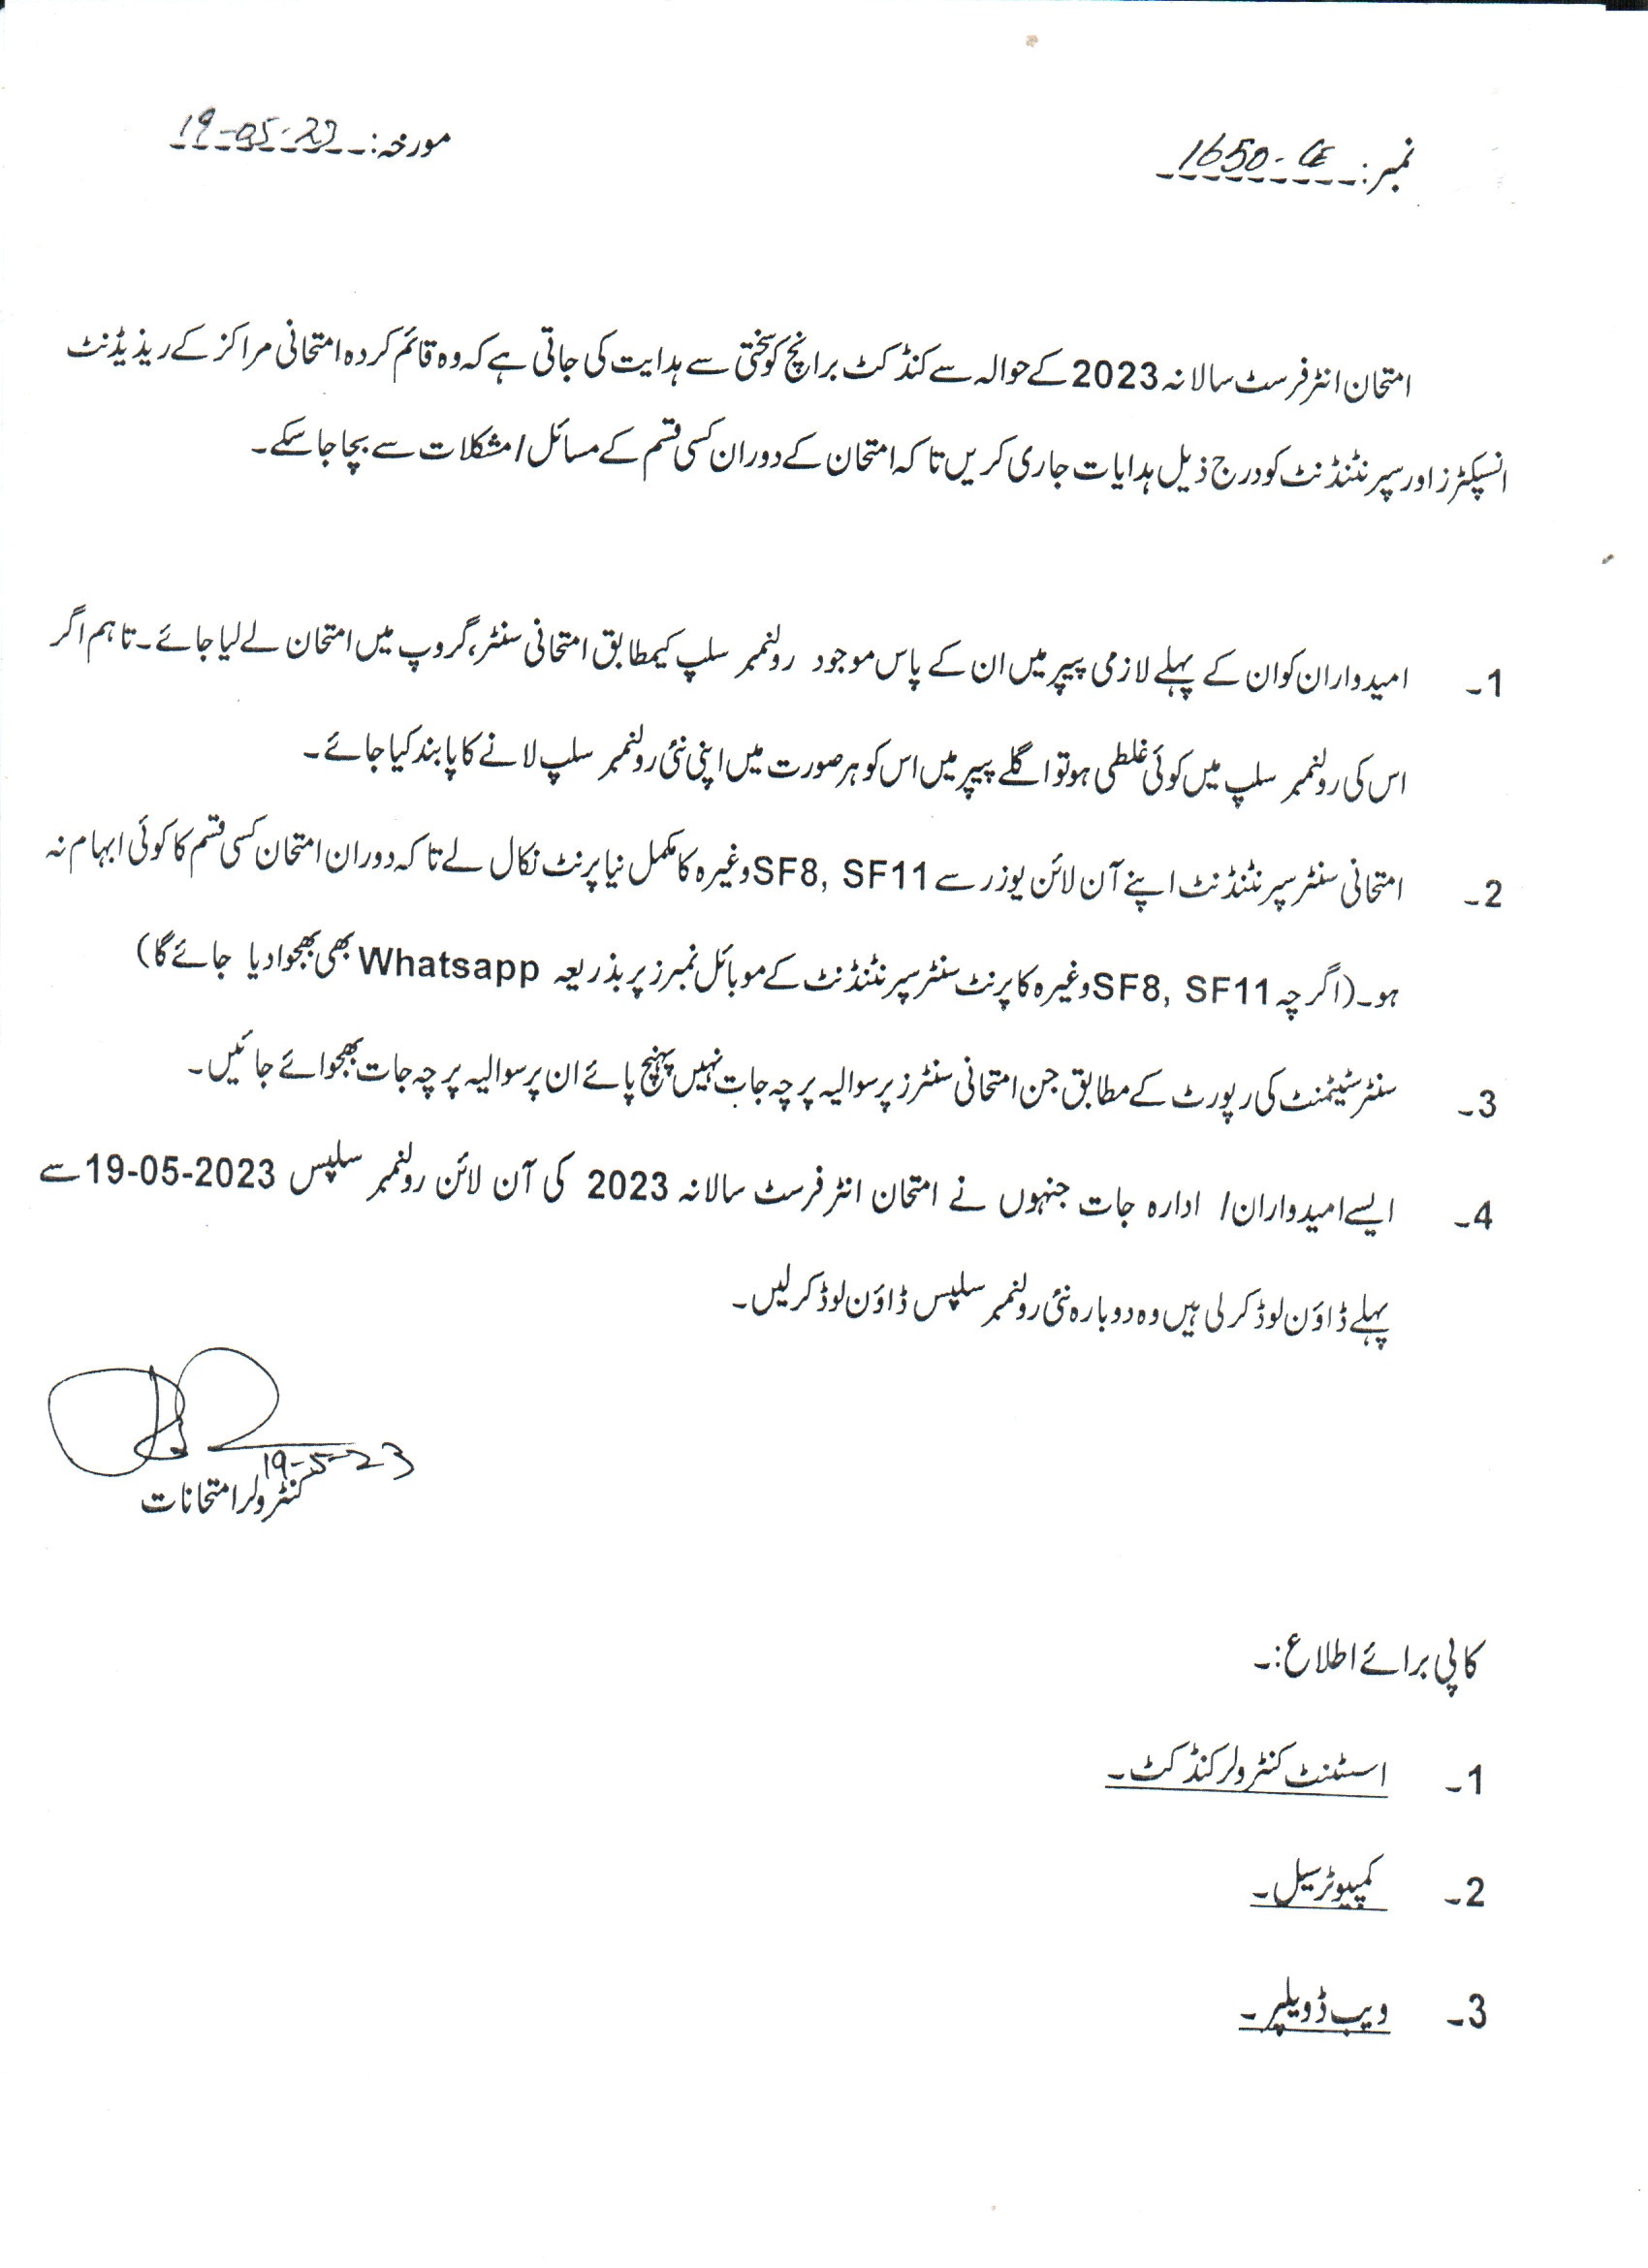 نمبر: 1650-CE
مورخہ: 19-05-23
امتحان انٹر فرسٹ سالانہ 2023 کے حوالہ سے کنڈکٹ برانچ کو سختی سے ہدایت کی جاتی ہے کہ وہ قائم کردہ امتحانی مراکز کے ریذیڈنٹ
انسپکٹرز اور سپرنٹنڈنٹ کو درج ذیل ہدایات جاری کریں تاکہ امتحان کے دوران کسی قسم کے مسائل/مشکلات سے بچا جا سکے۔
1۔ امیدواران کو ان کے پہلے لازمی پیپر میں ان کے پاس موجود رولنمبر سلپ کیمطابق امتحانی سنٹر، گروپ میں امتحان لے لیا جائے۔ تاہم اگر
اس کی رولنمبر سلپ میں کوئی غلطی ہو تو اگلے پیپر میں اس کو ہر صورت میں اپنی نئی رولنمبر سلپ لانے کا پابند کیا جائے۔
2۔ امتحانی سنٹر سپرنٹنڈنٹ اپنے آن لائن یوزر سے SF8, SF11 وغیرہ کا مکمل نیا پرنٹ نکال لے تاکہ دوران امتحان کسی قسم کا کوئی ابہام نہ
ہو۔ (اگرچہ SF8, SF11 وغیرہ کا پرنٹ سنٹر سپرنٹنڈنٹ کے موبائل نمبرز پر بذریعہ Whatsapp بھی بھجوا دیا جائے گا)
3۔ سنٹر سٹیٹمنٹ کی رپورٹ کے مطابق جن امتحانی سنٹرز پر سوالیہ پرچہ جات نہیں پہنچ پائے ان پر سوالیہ پرچہ جات بھجوائے جائیں۔
4۔ ایسے امیدواران/ ادارہ جات جنہوں نے امتحان انٹر فرسٹ سالانہ 2023 کی آن لائن رولنمبر سلپس 19-05-2023 سے
پہلے ڈاؤن لوڈ کر لی ہیں وہ دوبارہ نئی رولنمبر سلپس ڈاؤن لوڈ کر لیں۔
19-5-23
کنٹرولر امتحانات
کاپی برائے اطلاع:۔
1۔ اسسٹنٹ کنٹرولر کنڈکٹ۔
2۔ کمپیوٹر سیل۔
3۔ ویب ڈویلپر۔